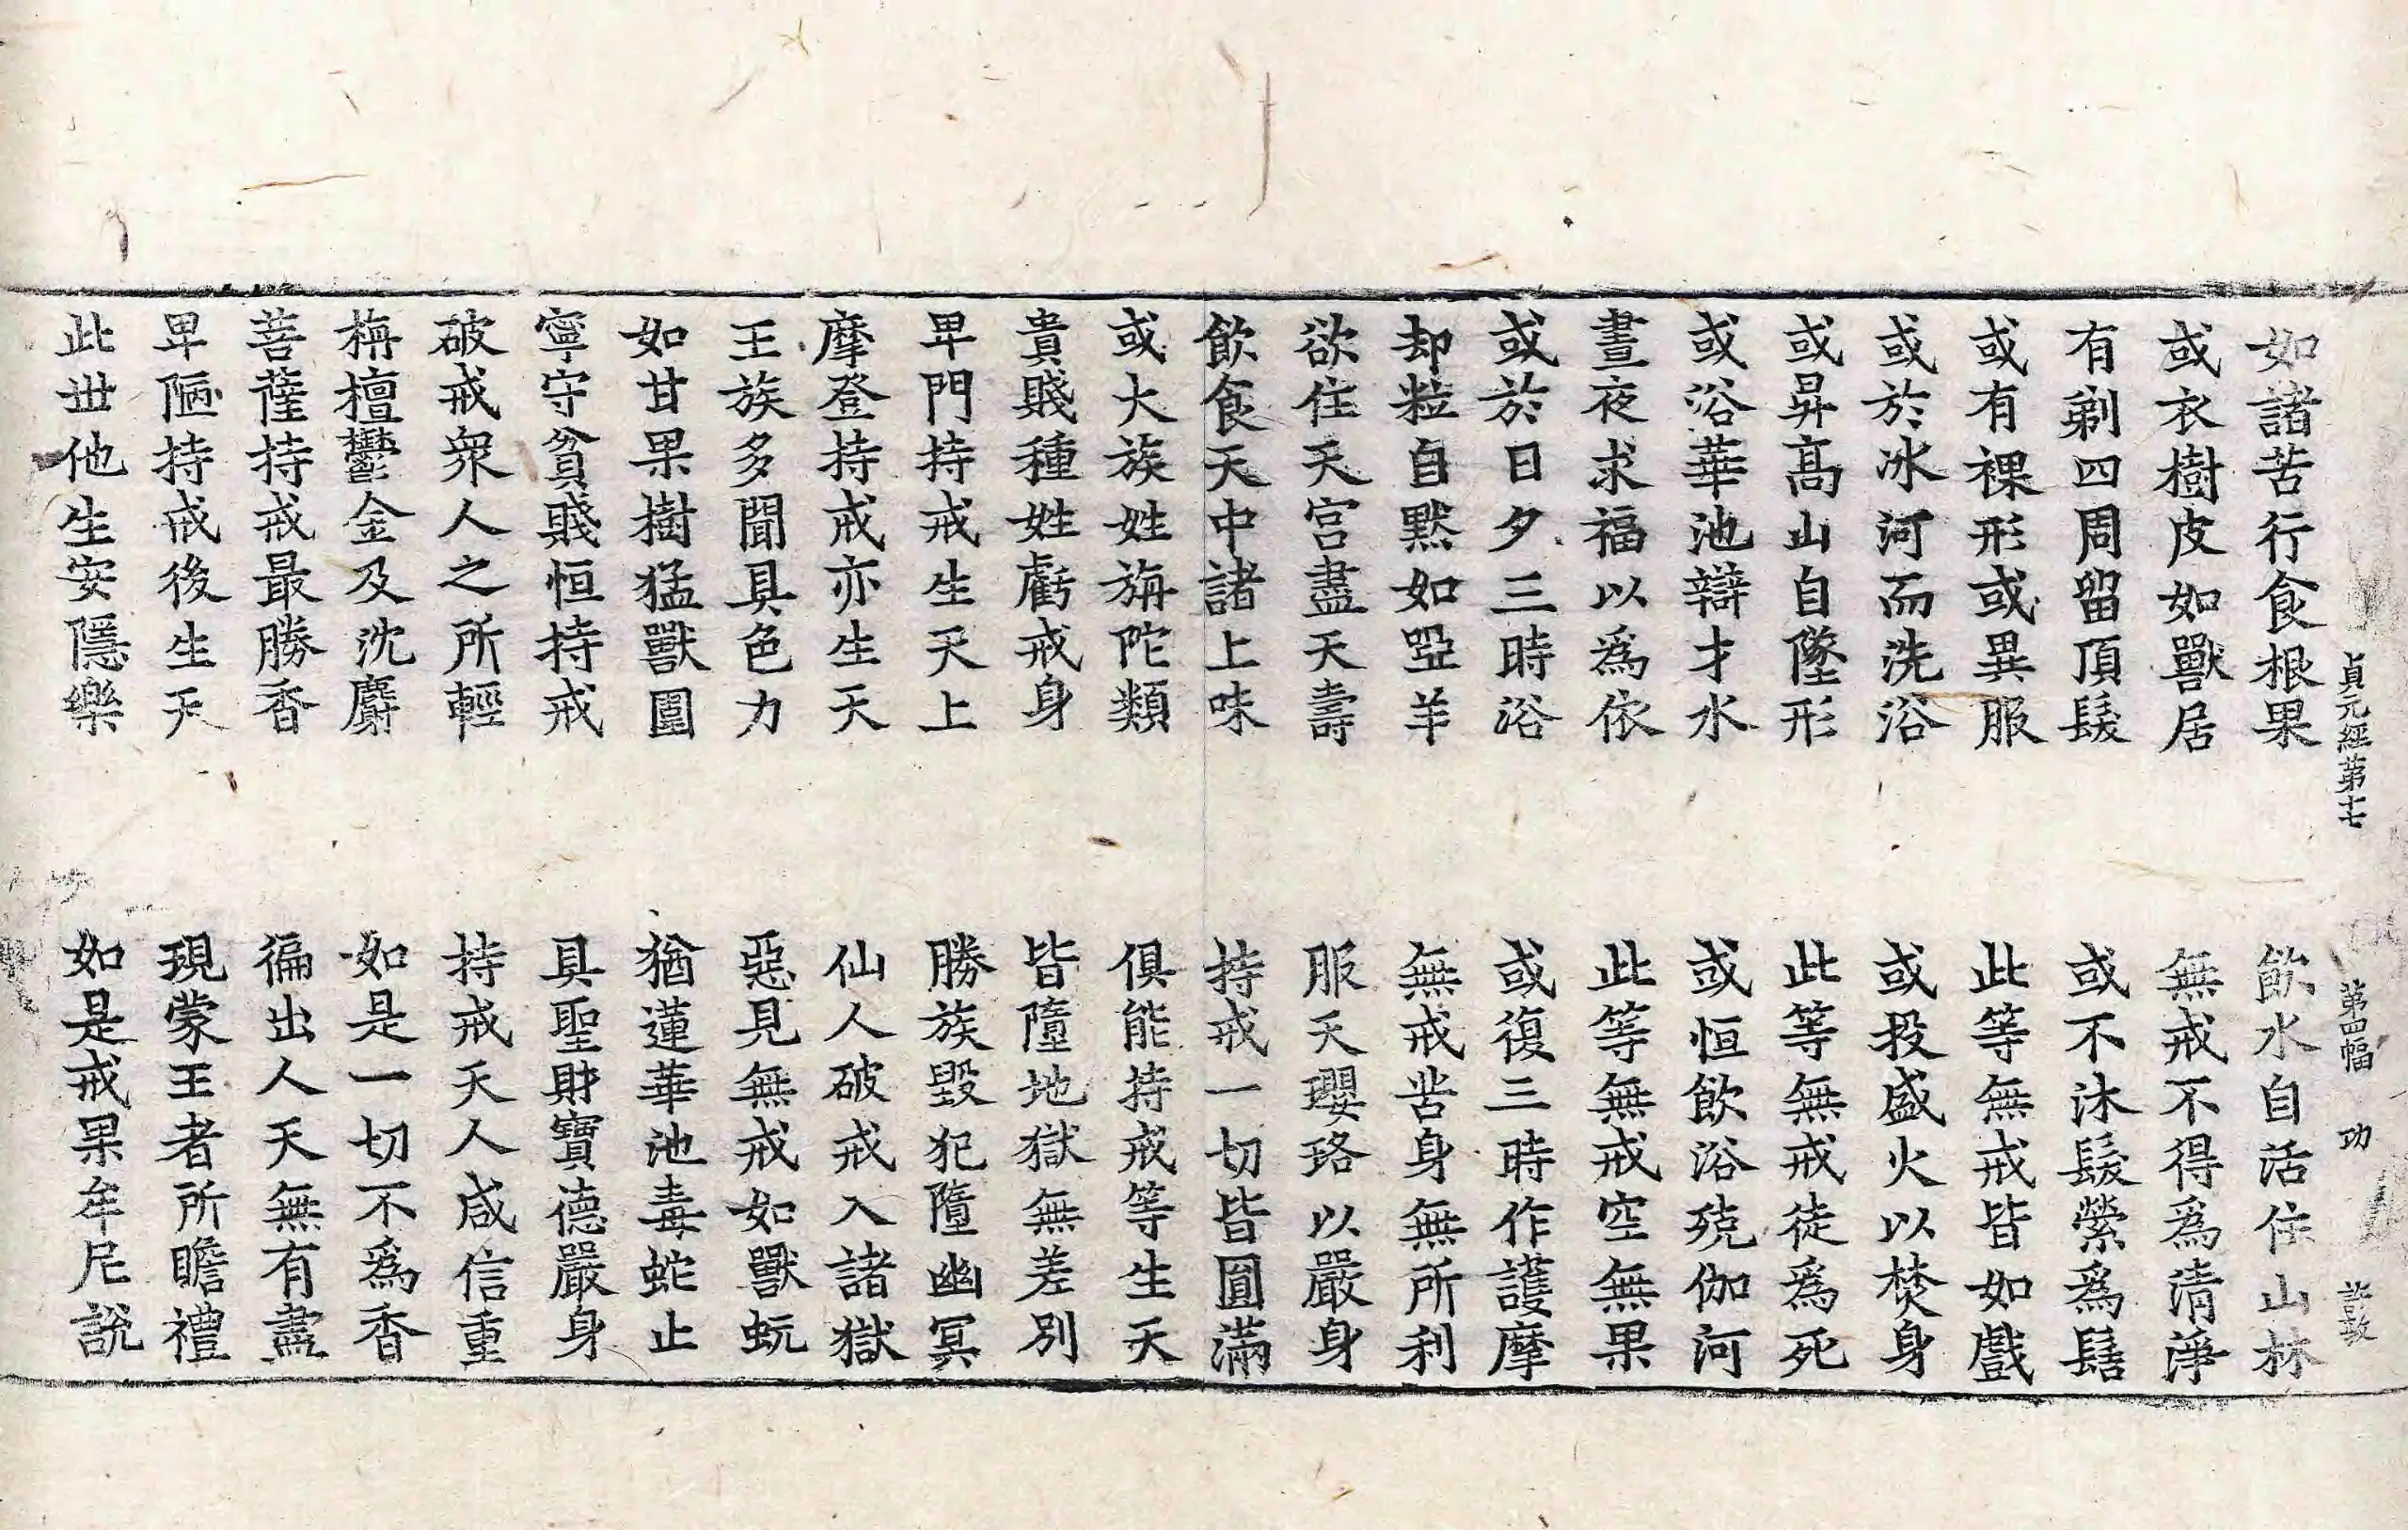 貞元經第十七 第四幅 功
如諸苦行食根果 飲水自活住山林
或衣樹皮如獸居 無戒不得爲清淨
有剃四周留頂髮 或不沐髮縈爲髻
或有裸形或異服 此等無戒皆如戲
或於冰河而洗浴 或投盛火以焚身
或昇高山自墜形 此等無戒徒爲死
或浴華池辯才水 或恒飲浴殑伽河
晝夜求福以爲依 此等無戒空無果
或於日夕三時浴 或復三時作護摩
却粒自默如啞羊 無戒苦身無所利
欲住天宮盡天壽 服天瓔珞以嚴身
飲食天中諸上味 持戒一切皆圓滿
或大族姓旃陀類 俱能持戒等生天
貴賤種姓虧戒身 皆墮地獄無差別
卑門持戒生天上 勝族毀犯墮幽冥
摩登持戒亦生天 仙人破戒入諸獄
王族多聞具色力 惡見無戒如獸蚖
如甘果樹猛獸圍 猶蓮華池毒蛇止
寧守貧賤恒持戒 具聖財寶德嚴身
破戒衆人之所輕 持戒天人咸信重
栴檀鬱金及沈麝 如是一切不爲香
菩薩持戒最勝香 徧出人天無有盡
卑陋持戒後生天 現蒙王者所瞻禮
此世他生安隱樂 如是戒果牟尼說